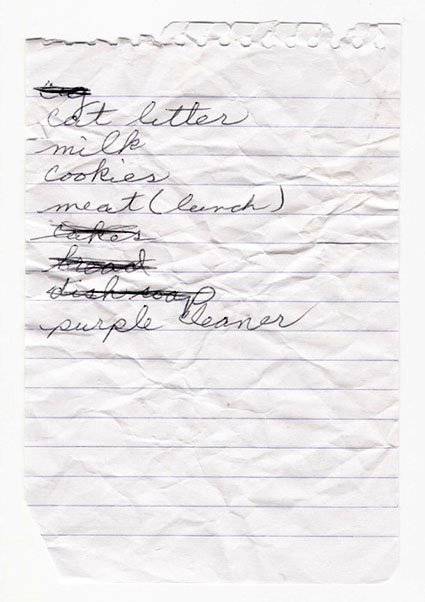 cat litter
milk
cookies
meat (lunch)
cakes
bread
dish soap
purple cleaner